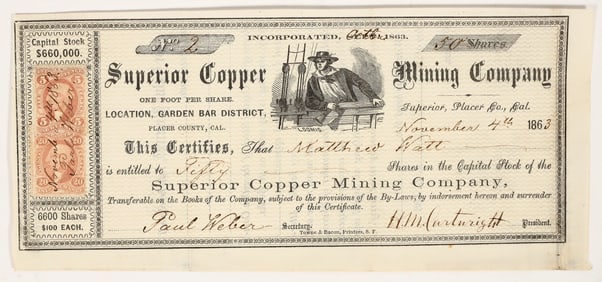 Capital Stock
$660,000.
No. 2
INCORPORATED, Octbr. 1863.
50 Shares
Superior Copper Mining Company
ONE FOOT PER SHARE.
LOCATION, GARDEN BAR DISTRICT,
PLACER COUNTY, CAL.
LOOMIS
Superior, Placer Co., Cal.
November 4th 1863
This Certifies, That Matthew Watt
is entitled to Fifty Shares in the Capital Stock of the
Superior Copper Mining Company,
Transferable on the Books of the Company, subject to the provisions of the By-Laws, by indorsement hereon and surrender
of this Certificate.
6600 Shares
$100 EACH.
Paul Weber Secretary.
H.M. Cartwright President.
Towne & Bacon, Printers, S. F.